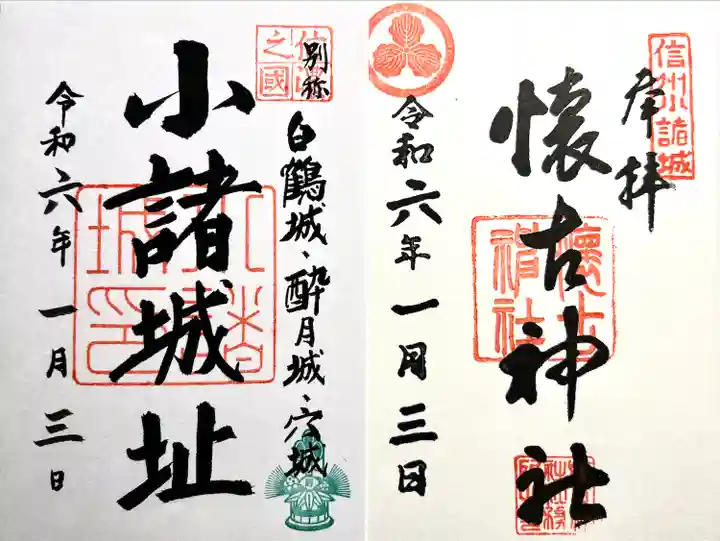 奉拝
信州小諸城
懐古神社
令和六年一月三日
信濃之國
別称
白鶴城、酔月城、穴城
小諸城址
令和六年一月三日